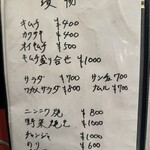 キムチ ¥400
カクテキ ¥400
オイキムチ ¥500
キムチ盛り合せ ¥1000
サラダ ¥700 サンチュ 700
ワカメサラダ ¥800 ナムル ¥700
ニンニク焼 ¥800
野菜焼 ¥1000
チャンジャ ¥1000
のり ¥600